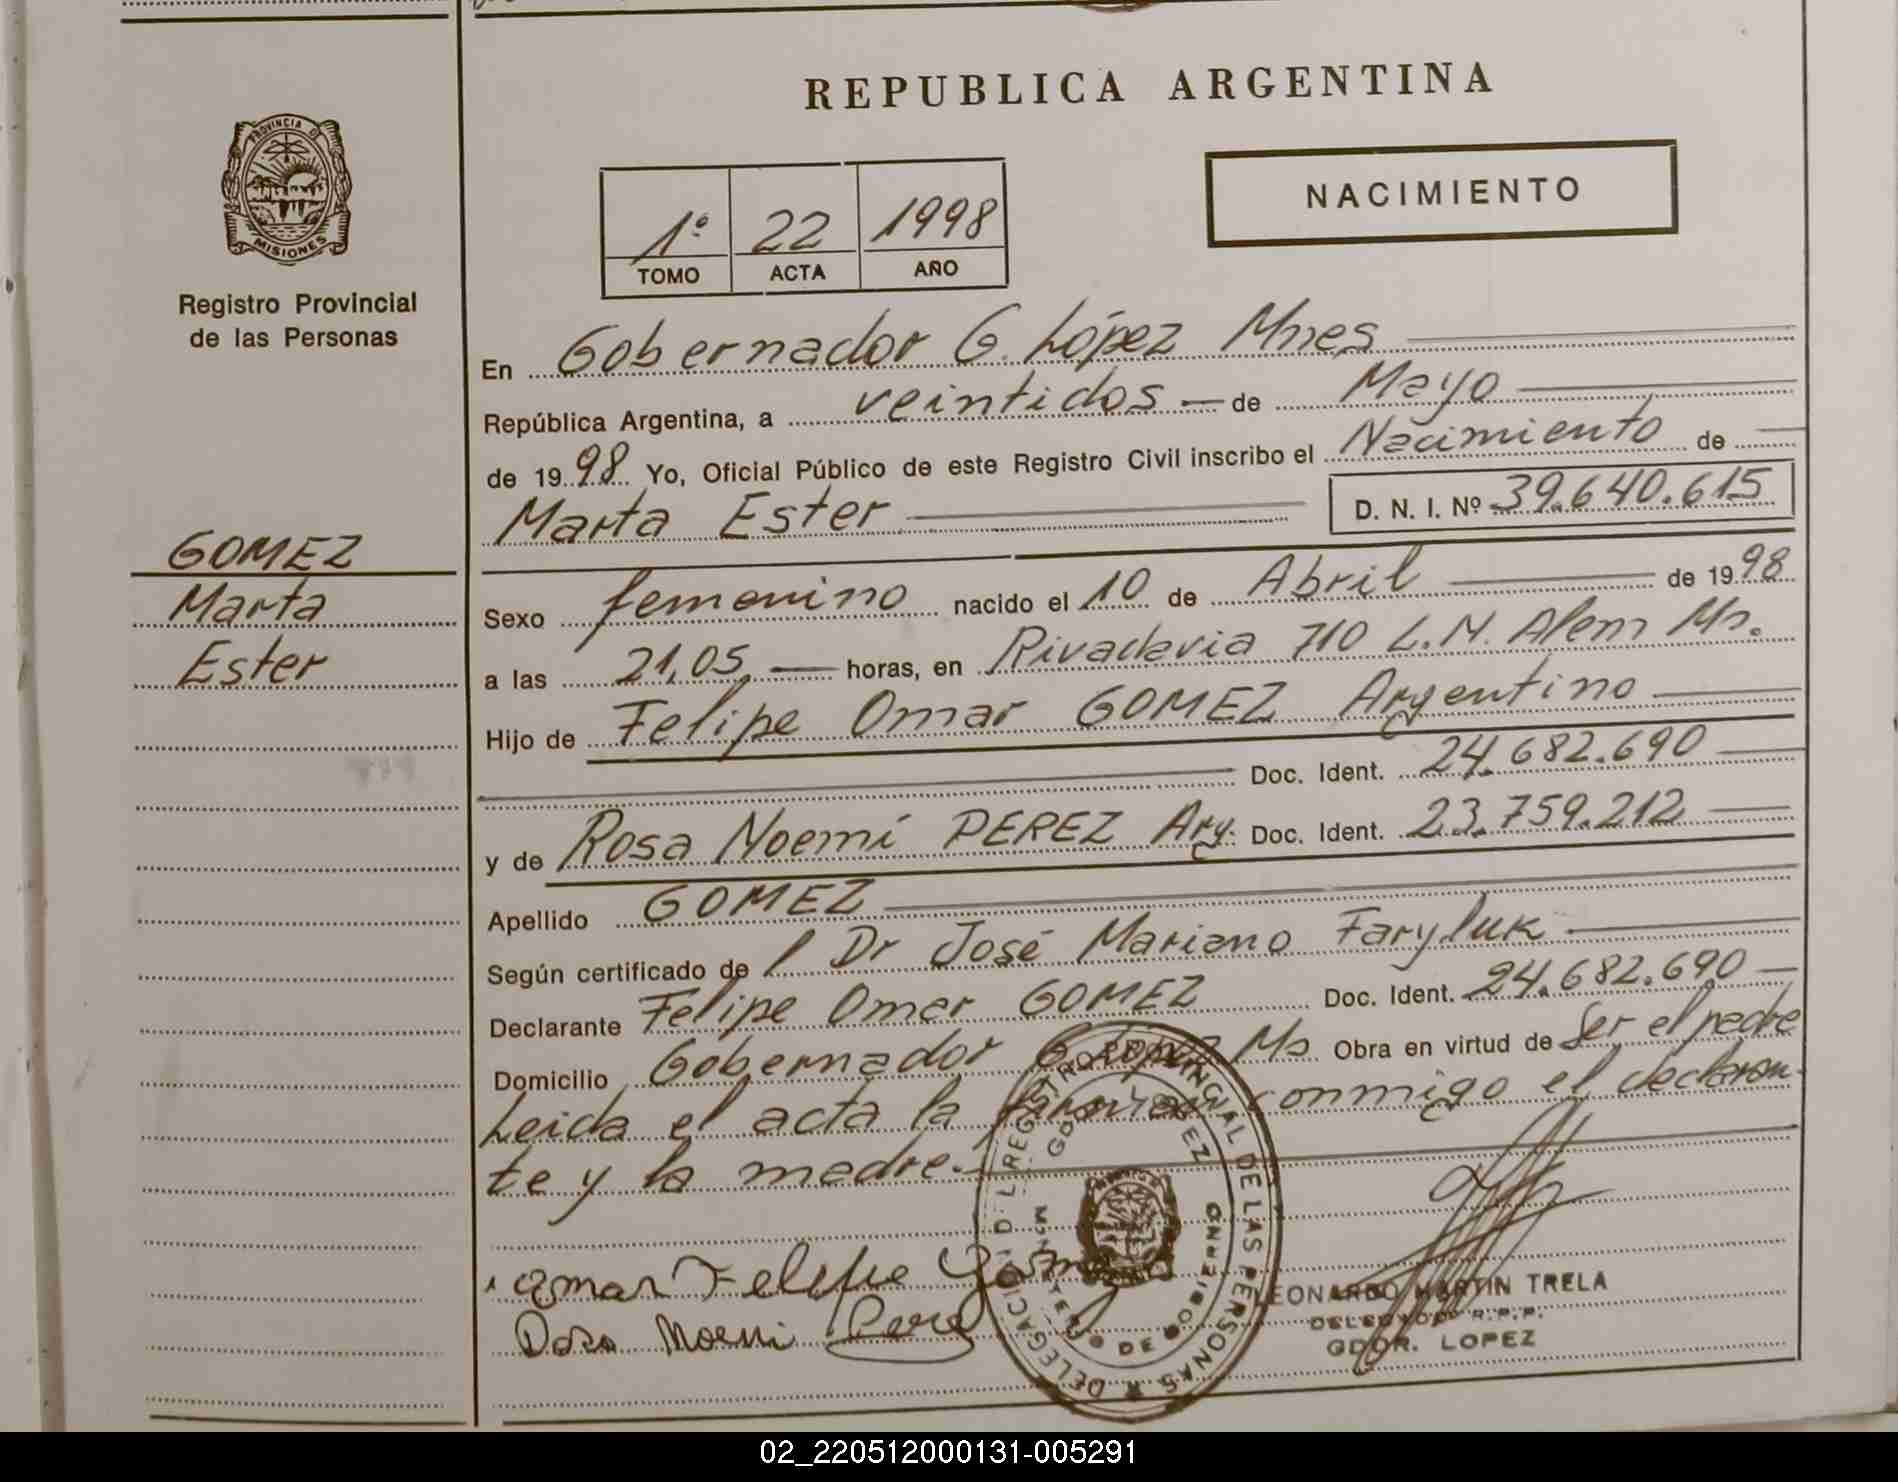 REPUBLICA ARGENTINA
PROVINCIA D
MISIONES
Registro Provincial
de las Personas
NACIMIENTO
1º 22 1998
TOMO ACTA AÑO
En Gobernador G. López Mnes
República Argentina, a veintidos de Mayo
de 1998 Yo, Oficial Público de este Registro Civil inscribo el Nacimiento de
Marta Ester D. N. I. Nº 39.640.615
GOMEZ
Marta
Ester
Sexo femenino nacido el 10 de Abril de 1998
a las 21,05 horas, en Rivadavia 710 L.N. Alem Mn.
Hijo de Felipe Omar GOMEZ Argentino
Doc. Ident. 24.682.690
y de Rosa Noemí PEREZ Arg. Doc. Ident. 23.759.212
Apellido GOMEZ
Según certificado de Dr José Mariano Faryluk
Declarante Felipe Omar GOMEZ Doc. Ident. 24.682.690
Domicilio Gobernador López Ms Obra en virtud de Ser el padre
Leida el acta la firman conmigo el declaran-
te y la madre.-
REGISTRO PROVINCIAL DE LAS PERSONAS
DELEGACION
LOPEZ
MINISTERIO DE GOBIERNO
Omar Felipe Gomez
Rosa Noemi Perez
LEONARDO MARTIN TRELA
DELEGADO R.P.P.
GDOR. LOPEZ
02_220512000131-005291